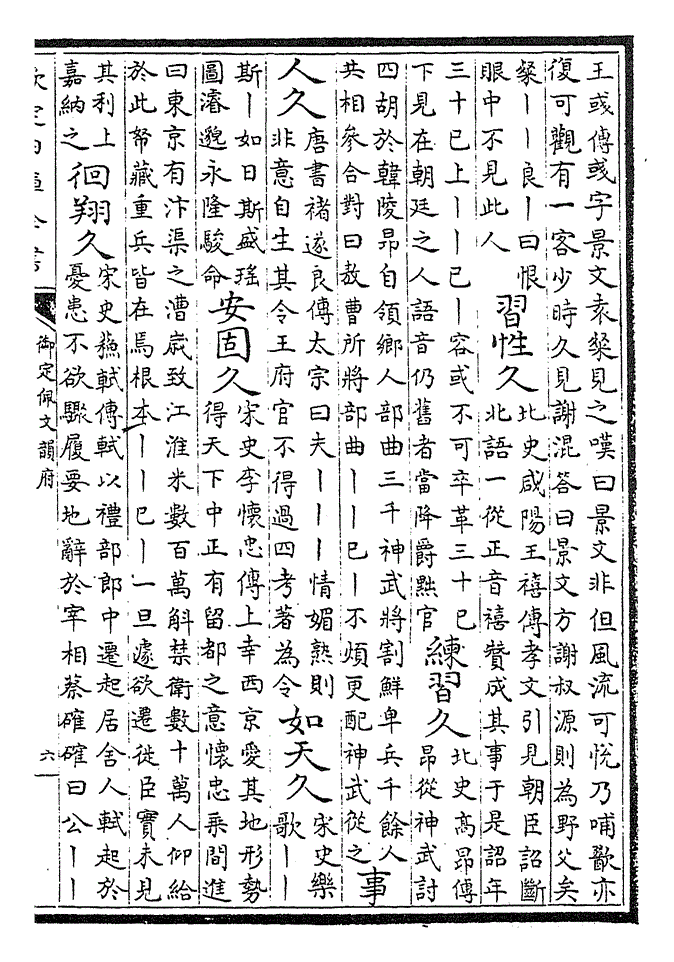 王彧傳彧字景文袁粲見之嘆曰景文非但風流可悅乃哺歠亦
復可觀有一客少時久見謝混答曰景文方謝叔源則為野父矣
粲丨丨良丨曰恨
眼中不見此人
習性久
北史咸陽王禧傳孝文引見朝臣詔斷
北語一從正音禧贊成其事于是詔年
三十巳上丨丨巳丨容或不可卒革三十巳
下見在朝廷之人語音仍舊者當降爵黜官
練習久
北史髙昂傳
昂從神武討
四胡於韓陵昂自領鄉人部曲三千神武將割鮮卑兵千餘人
共相參合對曰敖曹所將部曲丨丨巳丨不煩更配神武從之
事
人久
唐書褚遂良傳太宗曰夫丨丨丨情媚熟則
非意自生其令王府官不得過四考著為令
如天久
宋史樂
歌丨丨
斯丨如日斯盛瑤
圖濬邈永隆駿命
安固久
宋史李懷忠傳上幸西京愛其地形勢
得天下中正有留都之意懷忠乘間進
曰東京有汴渠之漕嵗致江淮米數百萬斛禁衛數十萬人仰給
於此帑藏重兵皆在焉根本丨丨巳丨一旦遽欲遷徙臣實未見
其利上
嘉納之
徊翔久
宋史蘇軾傳軾以禮部郎中遷起居舍人軾起於
憂患不欲驟履要地辭於宰相蔡確確曰公丨丨
欽定四庫全書
御定佩文韻府
六